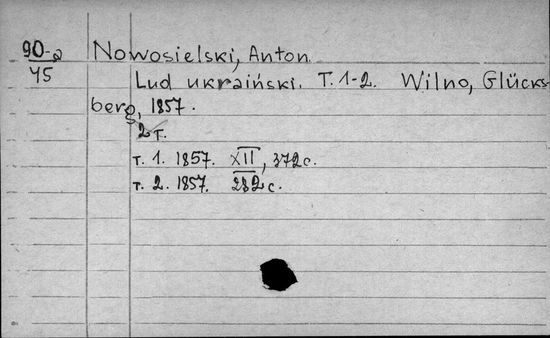 90-a Nowosielski, Anton
45 Lud ukraiński. T. 1-2. Wilno, Glücks-
berg, 1857.
2 т.
т. 1. 1857. XII, 372 с.
т. 2. 1857. 282 с.